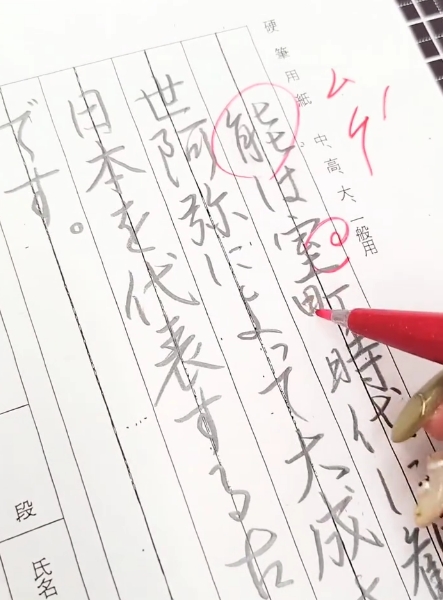 硬筆用紙 中、高、大、一般用
能は室町時代に
世阿弥によって大成
日本を代表する古
です。
段
氏名